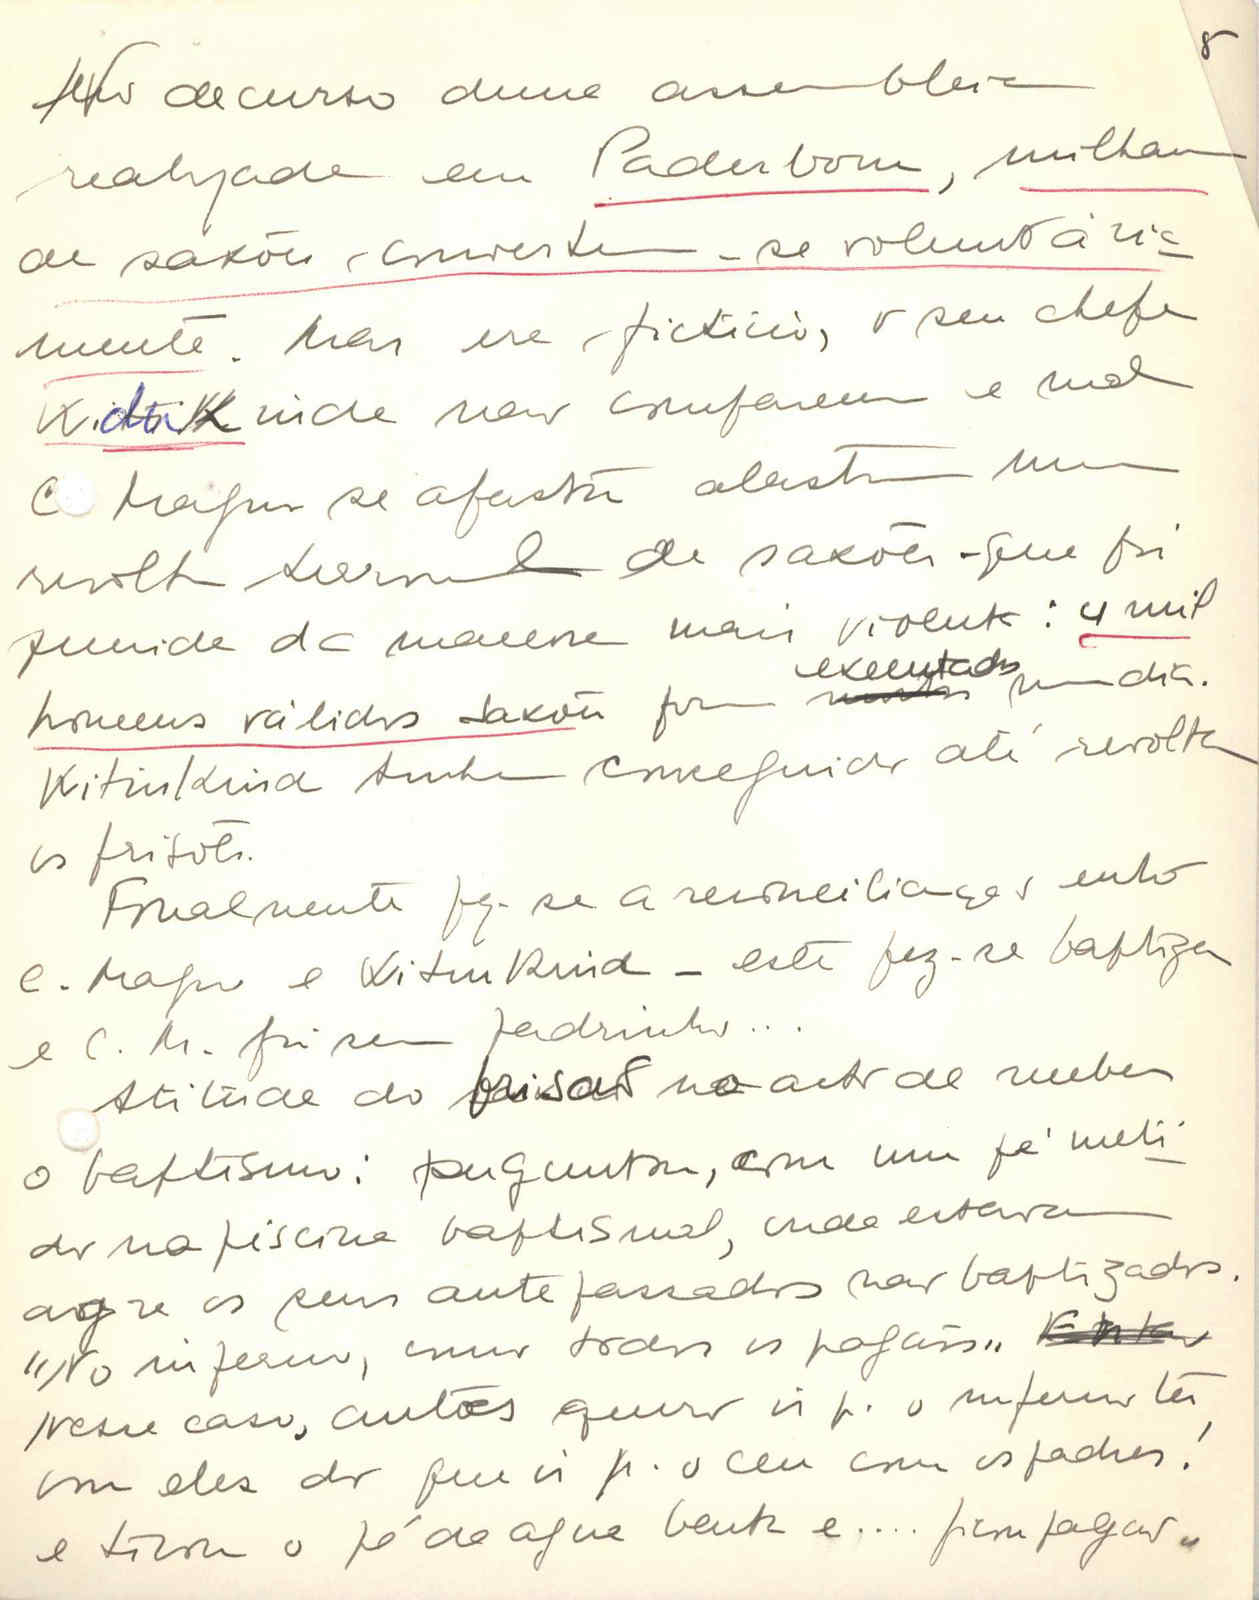 8
No decurso duma assembleia
realizada em Paderborn, milhares
de saxões convertem-se voluntária
mente. Mas era fictício, o seu chefe
não comparecem e mal
C. Magno se afasta alastra numa
revolta de saxões - que foi
punida da maneira mais violenta: 4 mil
homens válidos saxões foram executados num dia.
Kitinkind tinha conseguido até revoltar
os frisões.
Finalmente fez-se a reconciliação entre
C. Magno e Kitinkind - este fez-se baptizar
e C. M. foi seu padrinho...
Atitude do frisão no acto de receber
o baptismo: perguntou, com um pé meti
do na piscina baptismal, onde estavam
os seus antepassados não baptizados.
"No inferno, como todos os pagãos"
Nesse caso, antes quero ir p. o inferno ter
com eles do que ir p. o ceu com os padres!
e tirou o pé da agua benta e.... ficou pagão"